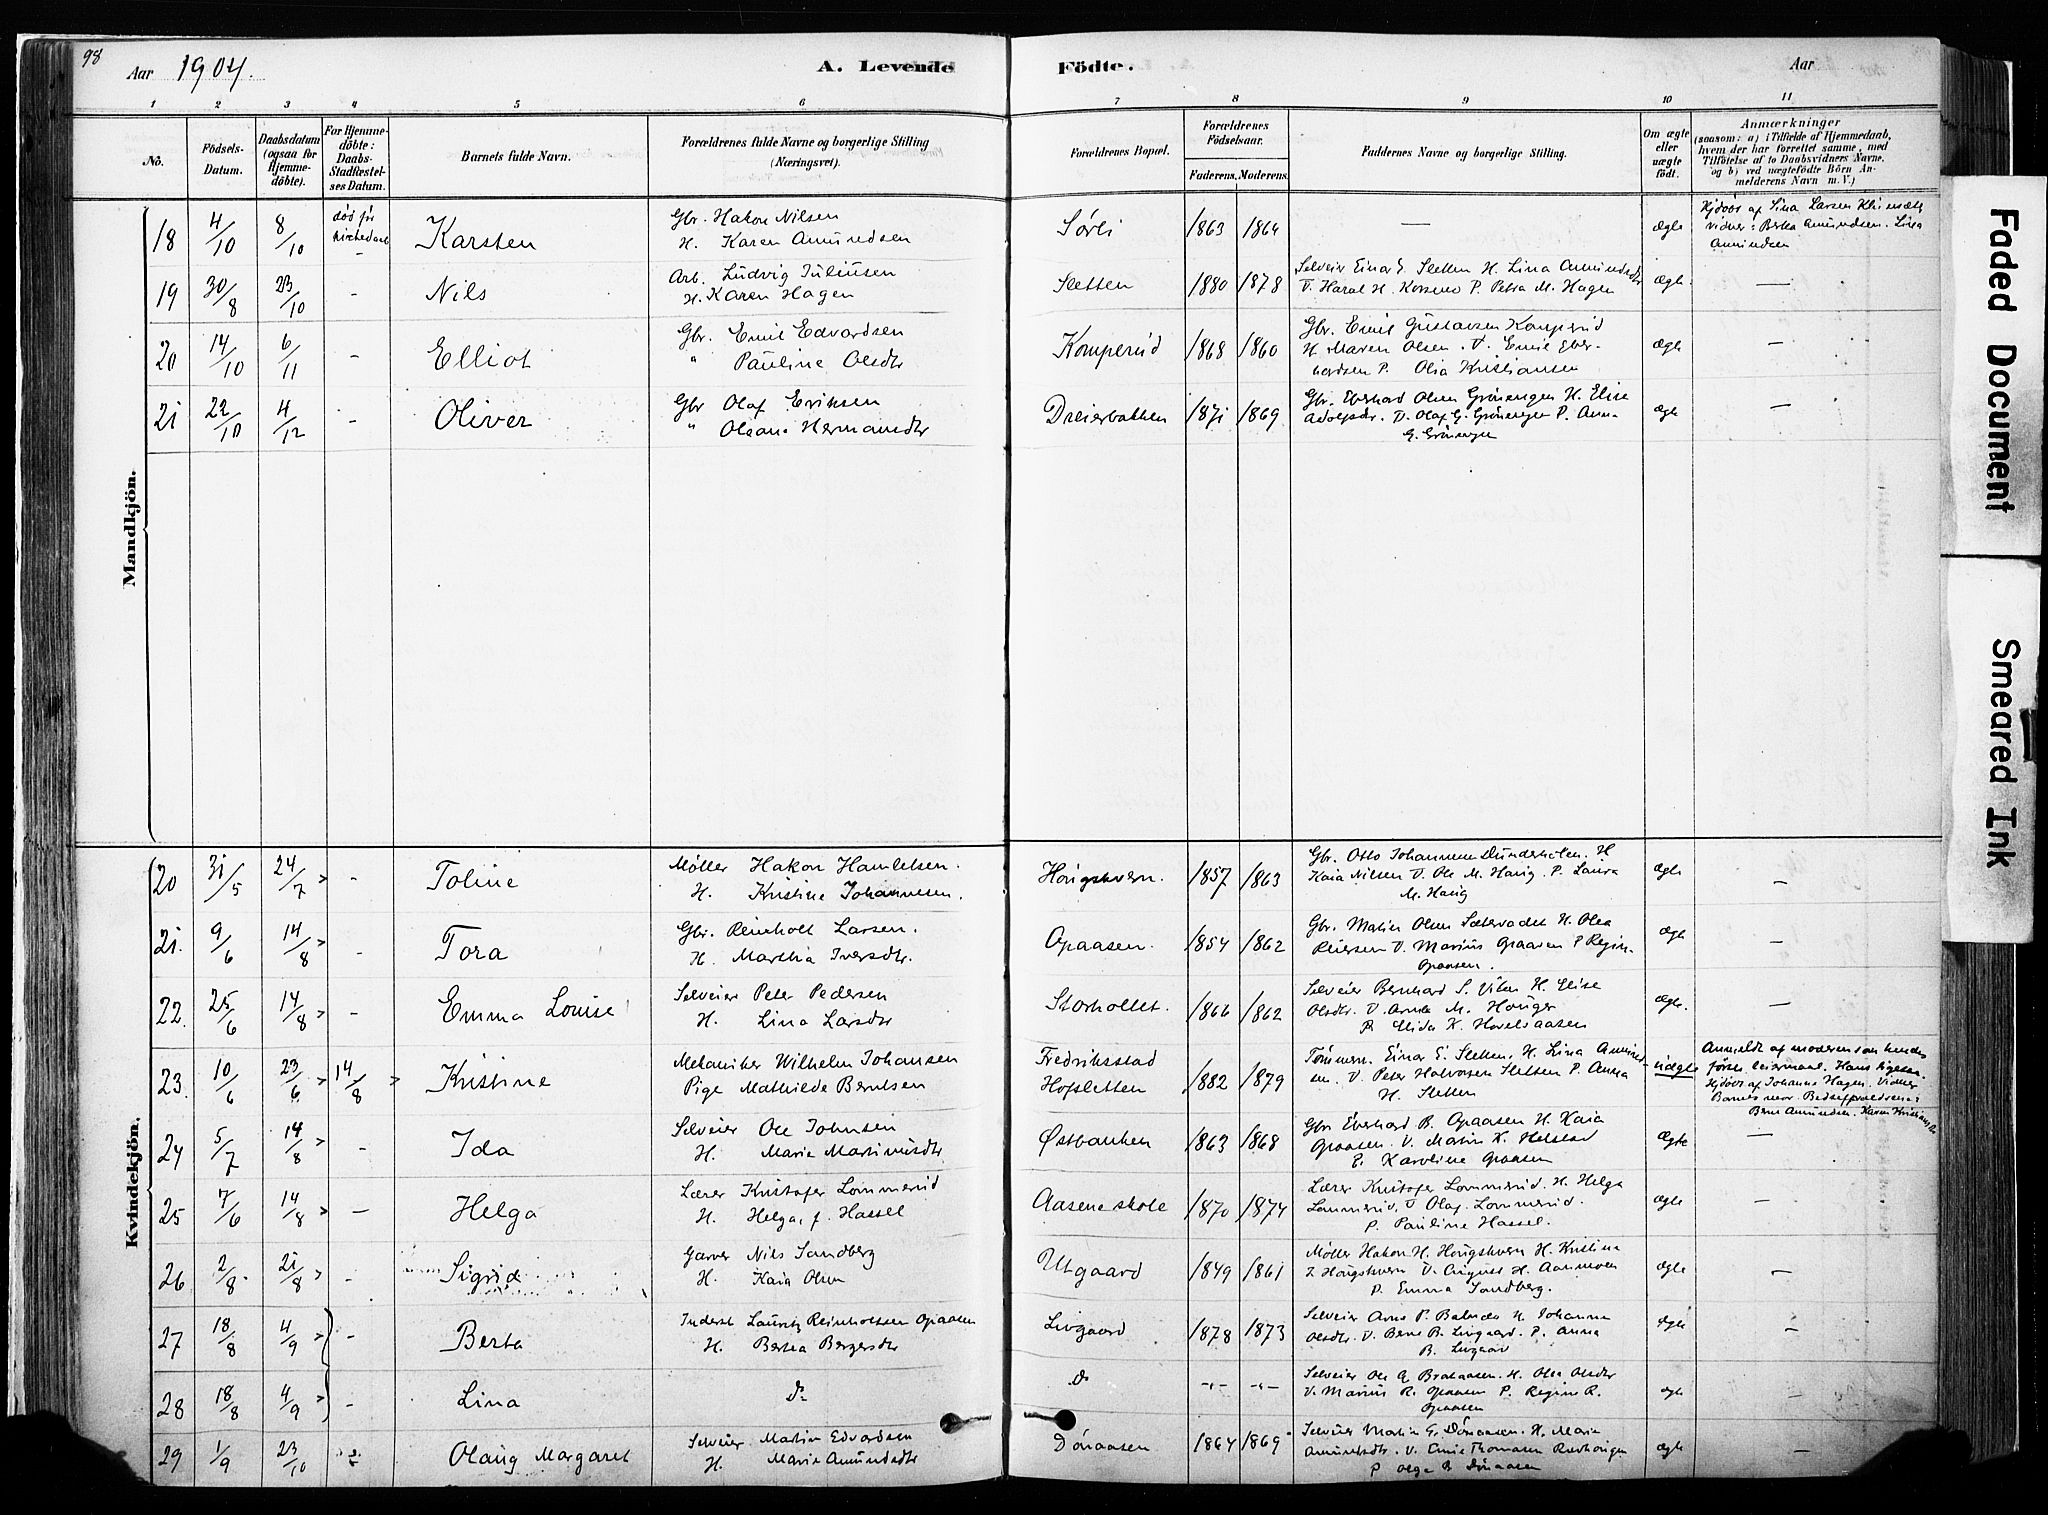 98
Aar 1904.
A. Levende Födte.
Aar
1 2 3 4 5 6 7 8 9 10 11
No.
Födsels-Datum.
Daabsdatum (ogsaa for Hjemme-döbte).
For Hjemme-döbte: Daabs-Stadfæstel-ses Datum.
Barnets fulde Navn.
Forældrenes fulde Navne og borgerlige Stilling (Næringsvei).
Forældrenes Bopæl.
Forældrenes Födselsaar.
Faderens. Moderens.
Faddernes Navne og borgerlige Stilling.
Om ægte eller uægte födt.
Anmærkninger
(saasom: a) i Tilfælde af Hjemmedaab, hvem der har forrettet samme, med Tilföielse af to Daabsvidners Navne, og b) ved uægtefödte Börn An-melderens Navn m. V.)
Mandkjön.
18 4/10 8/10 død før kirkedaab - Karsten Gbr. Hakon Nilsen
H. Karen Amundsen Sørli 1863 1864 — ægte Hjdøbt af Lina Larsen
Vidner: Berthe Amundsen. Lina Amundsen
19 30/8 23/10 - Nils Arb. Ludvig Juliusen
H. Karen Hagen Sletten 1880 1878 Selveier Einar E. Sletten H. Lina Amundsdtr
P. Petra M. Hagen ægte. —
20 14/10 6/11 - Elliot Gbr. Emil Edvardsen
" Pauline Olsdtr Komperud 1868 1860 Gbr. Emil Gustavsen Komperud
H. Maren Olsen. V. Emil
P. Olia Kristiansen ægte —
21 22/10 4/12 - Oliver Gbr Olaf Eriksen
" Oleane Hermansdtr Dreierbakken 1871 1869 Gbr. Eberhard Olsen Grüningen H. Elise
V. Olaf G. Grüningen P. Anna
G. Grüningen ægte —
Kvindekjön.
20 31/5 24/7 - Toline Møller Hakon Hamletsen.
H. Kristine Johannesen. Hougskvern. 1857 1863 Gbr. Otto Johannesen Dunderholen. H
Kaia Nilsen V. Ole M. Haug. P. Laura
M. Haug ægte —
21. 9/6 14/8 - Tora Gbr. Reinholt Larsen.
H. Marthia Iversdtr. Opaasen. 1854 1862 Gbr. Martin Olsen Sætervadet H. Olea
Reiersen V. Marius Opaasen P Regin-
Opaasen. ægte —
22. 25/6 14/8 - Emma Louise Selveier Peter Pedersen
H. Lina Larsdtr Storholtet. 1866 1862 Selveier Bernhard S. H. Elise
Olsdtr. V. M. Houger
P. Elida K. Hovelsaasen ægte. —
23. 10/6 23/6 14/8 Kristine Mekaniker Wilhelm Johansen
Pige Mathilde Berntsen Fredriksstad
Hofsletten 1882 1879 Tømmerm. Einar E. Sletten. H. Lina Amund-
sen. V. Peter Halvorsen Sletten P. Anna
H. Sletten uægte Anmeldt af moderen som hendes
første leiermaal.
Hjdøbt af Johanne Hagen. Vidner
Barnets mor. Bedsteforældrene:
Bernt Amundsen. Karen Kristiansdtr
24 5/7 14/8 - Ida Selveier Ole Johnsen
H. Marie Martinusdtr Østbanken 1863 1868 Gbr Eberhard B. Opaasen H. Kaia
Opaasen. V. Martin K. Helstad
P. Karoline Opaasen ægte —
25 7/6 14/8 — Helga Lærer Kristofer Lommerud
H. Helga, f. Hassel Aasene skole 1870 1874 Lærer Kristofer Lommerud. H. Helga
Lommerud. V Olaf Lommerud.
P. Pauline Hassel. ægte —
26 2/8 21/8 - Sigrid Garver Nils Sandberg
H. Kaia Olsen Utgaard 1849 1861 Møller Hakon H. Hougskvern H. Kristine
J Hougskvern V. August H. Aanmoen
P. Emma Sandberg. ægte -
27 18/8 4/9 - Berta Inderst Lauritz Reinholtsen Opaasen
H. Berthea Bergersdtr Livgaard 1878 1873 Selveier H. Johanna
Olsdtr. V. Bernt B. Livgaard. P. Anna
B. Livgaard ægte —
28 18/8 4/9 - Lina Do do -"- -"- Selveier Ole G Brataasen. H. Olea Olsdtr
V. Marius R. Opaasen P. Regine R.
Opaasen ægte —
29 1/9 23/10 Olaug Margaret Selveier Martin Edvardsen
H. Marie Amundsdtr Dönaasen 1864 1869 Selveier Martin E. Dönaasen. H. Marie
Amundsdtr. V. Thomasen
P Olga B Dönaasen ægte —
Faded Document
Smeared Ink